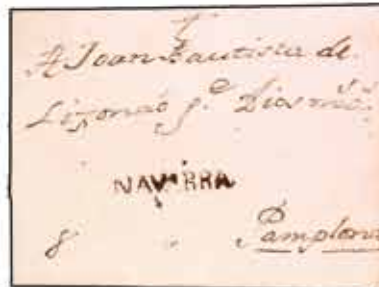 A Joan Bautista de
Lizonao g.e Dios m.s a.s
NAVARRA
8 Pamplona